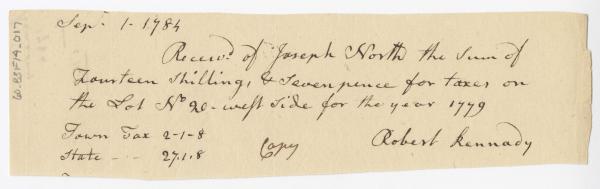 Sepr 1- 1784
Receivd of Joseph North the Sum of
Fourteen Shilling, & Sevenpence for taxes on
the Lot No 20- west Side for the year 1779
Town Tax 2-1-8
State - - 27.1.8
Copy
Robert Kennady